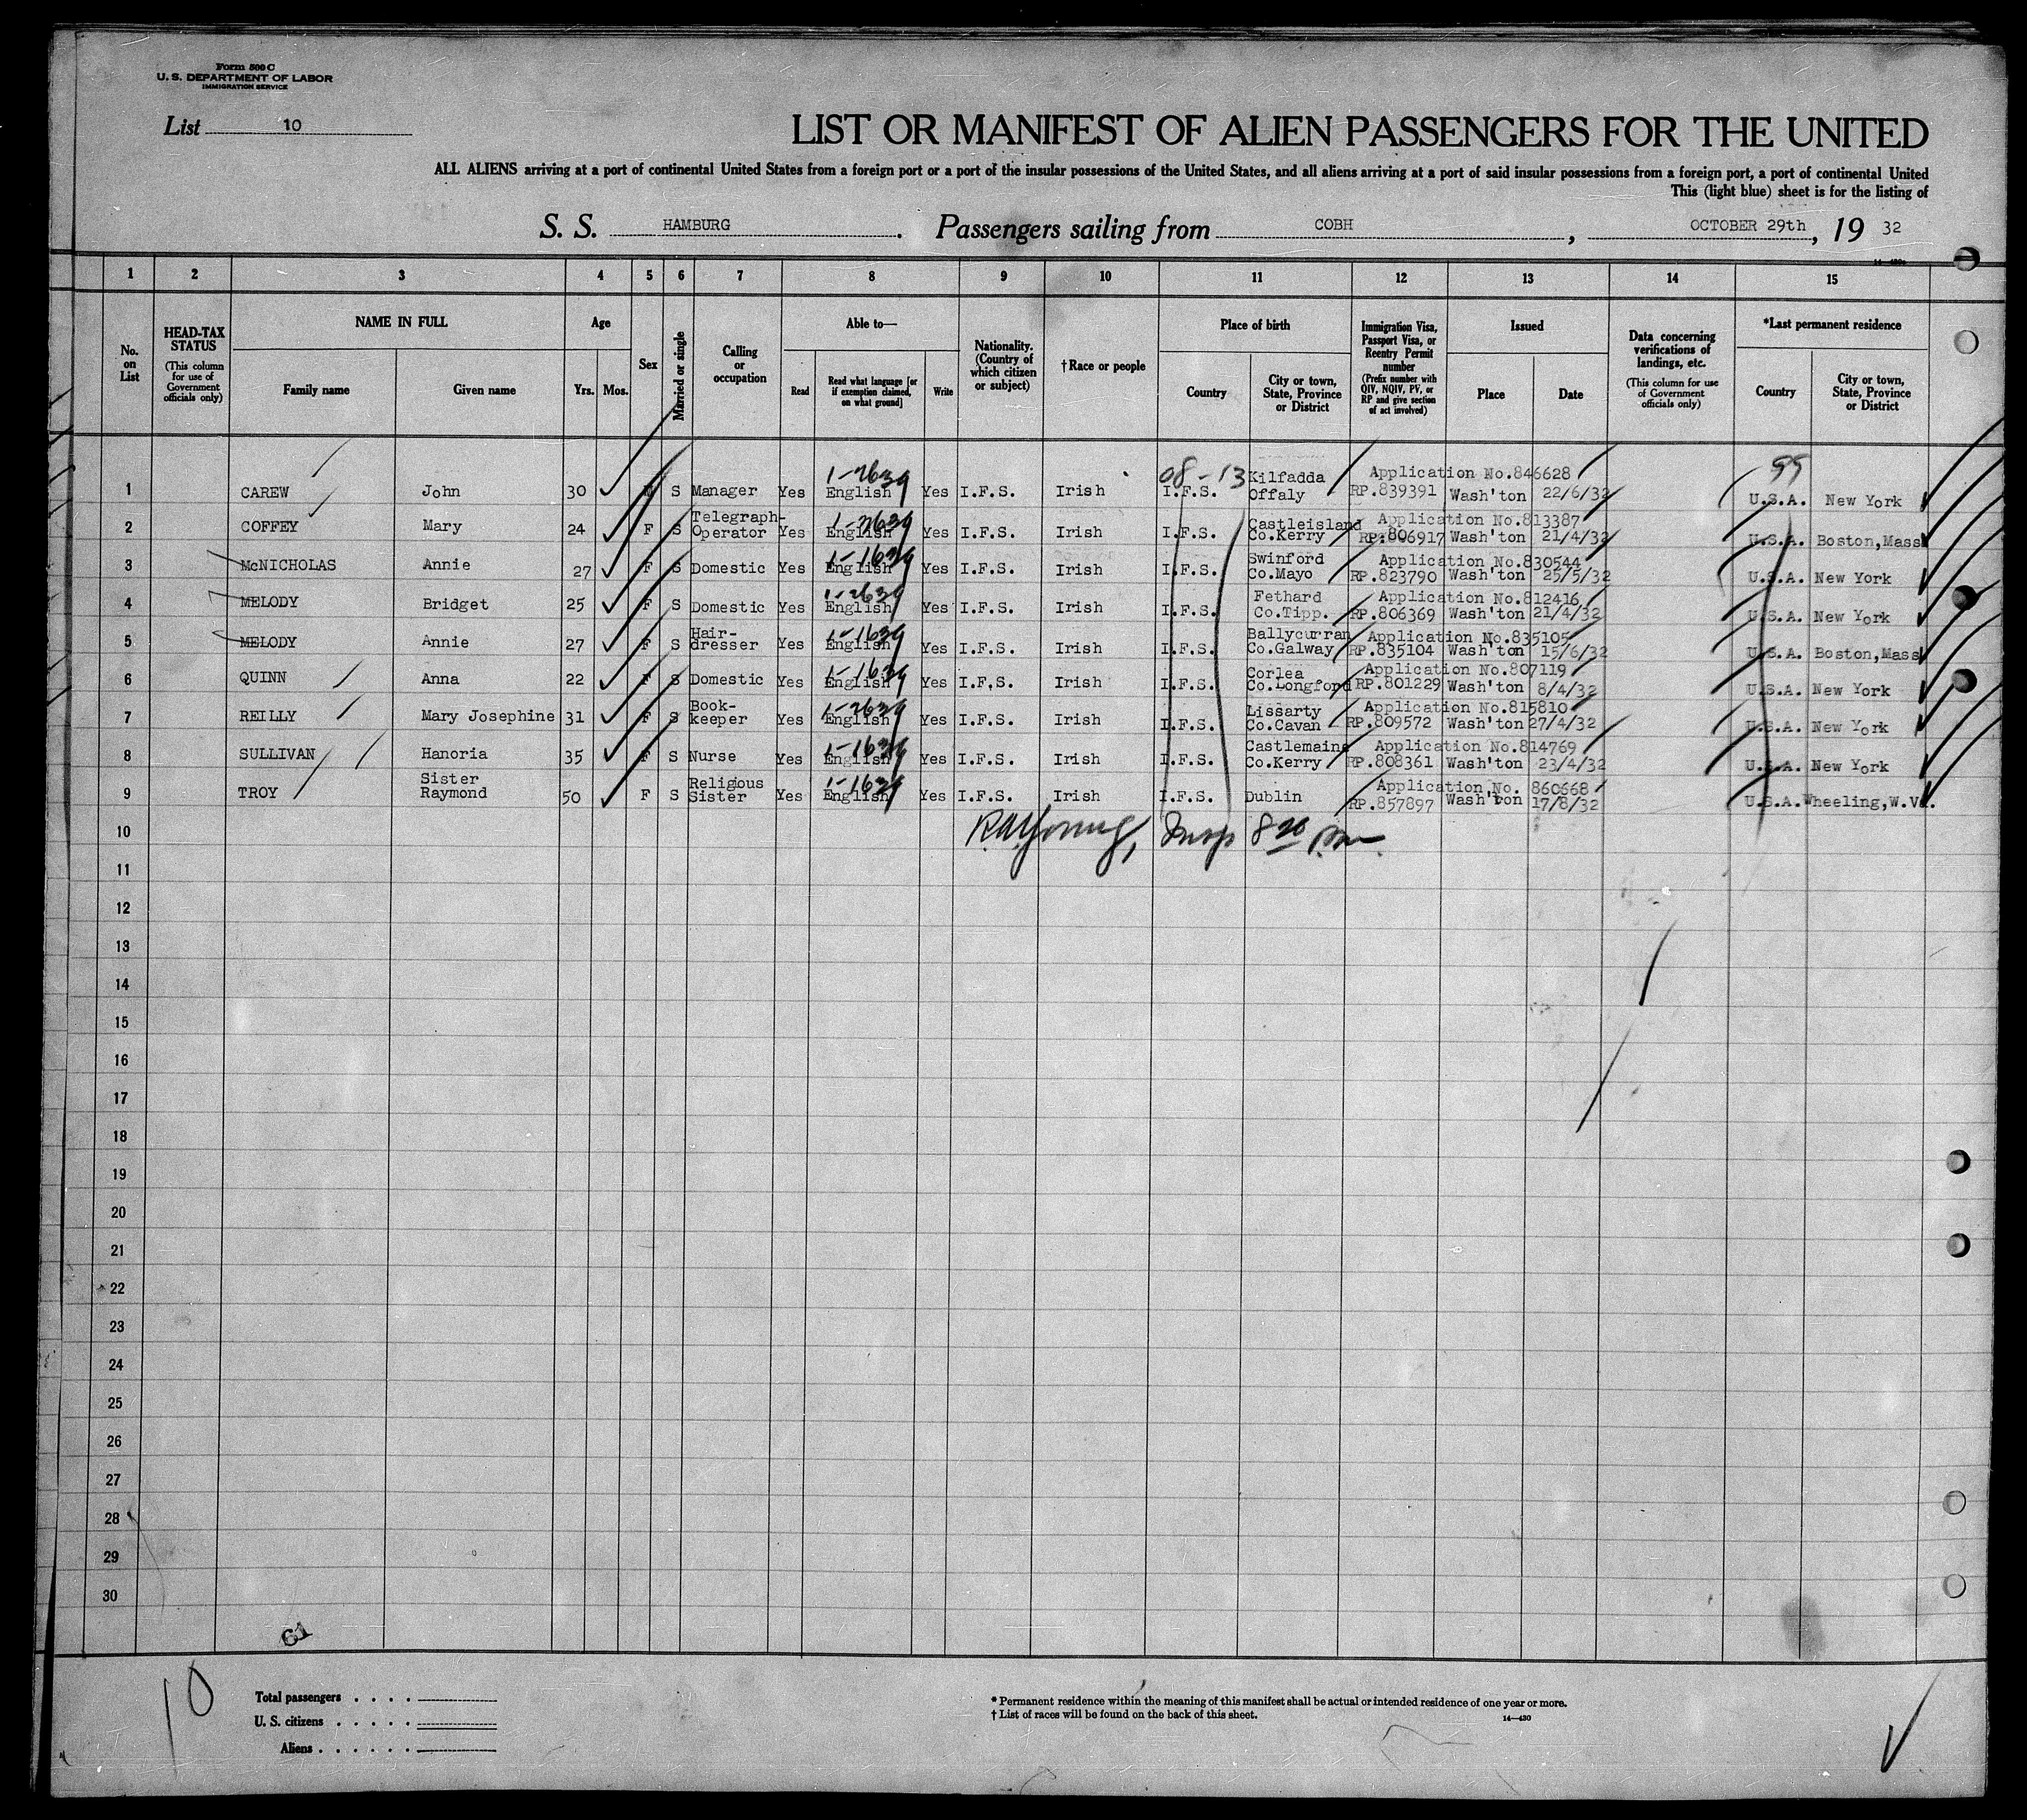 Form 500 C
U. S. DEPARTMENT OF LABOR
IMMIGRATION SERVICE
List 10
LIST OR MANIFEST OF ALIEN PASSENGERS FOR THE UNITED
ALL ALIENS arriving at a port of continental United States from a foreign port or a port of the insular possessions of the United States, and all aliens arriving at a port of said insular possessions from a foreign port, a port of continental United
This (light blue) sheet is for the listing of
S. S. HAMBURG. Passengers sailing from COBH, OCTOBER 29th, 19 32
1 2 3 4 5 6 7 8 9 10 11 12 13 14 15
No. on List
HEAD-TAX STATUS (This column for use of Government officials only)
NAME IN FULL
Family name
Given name
Age
Yrs. Mos.
Sex
Married or single
Calling or occupation
Able to—
Read
Read what language [or if exemption claimed, on what ground]
Write
Nationality. (Country of which citizen or subject)
†Race or people
Place of birth
Country
City or town, State, Province or District
Immigration Visa, Passport Visa, or Reentry Permit number (Prefix number with QIV, NQIV, PV, or RP and give section of act involved)
Issued
Place
Date
Data concerning verifications of landings, etc. (This column for use of Government officials only)
*Last permanent residence
Country
City or town, State, Province or District
08-13
99
1 CAREW John 30 M S Manager Yes 1-2639 English Yes I.F.S. Irish I.F.S. Kilfadda Offaly Application No.846628 RP.839391 Wash'ton 22/6/32 U.S.A. New York
2 COFFEY Mary 24 F S Telegraph-Operator Yes 1-2639 English Yes I.F.S. Irish I.F.S. Castleisland Co.Kerry Application No.813387 RP.806917 Wash'ton 21/4/32 U.S.A. Boston,Mass
3 McNICHOLAS Annie 27 F S Domestic Yes 1-1639 English Yes I.F.S. Irish I.F.S. Swinford Co.Mayo Application No.830544 RP.823790 Wash'ton 25/5/32 U.S.A. New York
4 MELODY Bridget 25 F S Domestic Yes 1-2639 English Yes I.F.S. Irish I.F.S. Fethard Co.Tipp. Application No.812416 RP.806369 Wash'ton 21/4/32 U.S.A. New York
5 MELODY Annie 27 F S Hair-dresser Yes 1-1639 English Yes I.F.S. Irish I.F.S. Ballycurran Co.Galway Application No.835105 RP.835104 Wash'ton 15/6/32 U.S.A. Boston,Mass
6 QUINN Anna 22 F S Domestic Yes 1-1639 English Yes I.F.S. Irish I.F.S. Corlea Co.Longford Application No.807119 RP.801229 Wash'ton 8/4/32 U.S.A. New York
7 REILLY Mary Josephine 31 F S Book-keeper Yes 1-2639 English Yes I.F.S. Irish I.F.S. Lissarty Co.Cavan Application No.815810 RP.809572 Wash'ton 27/4/32 U.S.A. New York
8 SULLIVAN Hanoria 35 F S Nurse Yes 1-1639 English Yes I.F.S. Irish I.F.S. Castlemaine Co.Kerry Application No.814769 RP.808361 Wash'ton 23/4/32 U.S.A. New York
9 TROY Sister Raymond 50 F S Religious Sister Yes 1-1639 English Yes I.F.S. Irish I.F.S. Dublin Application No. 860668 RP.857897 Wash'ton 17/8/32 U.S.A. Wheeling,W.Va.
10 Insp 8 20 pm
11
12
13
14
15
16
17
18
19
20
21
22
23
24
25
26
27
28
29
30
61
10
Total passengers . . . .
U. S. citizens . . . . .
Aliens . . . . . .
* Permanent residence within the meaning of this manifest shall be actual or intended residence of one year or more.
† List of races will be found on the back of this sheet.
14—430